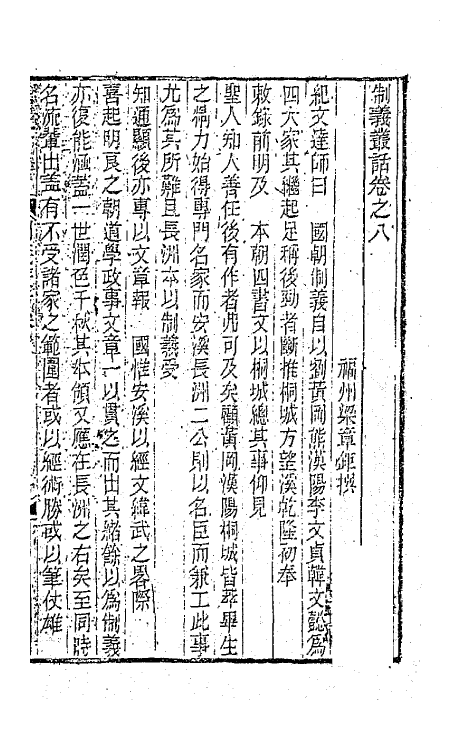 制義叢話卷之八
福州梁章鉅撰
紀文達師曰　國朝制義自以劉黃岡熊漢陽李文貞韓文懿爲
四大家其繼起足稱後勁者斷推桐城方望溪乾隆初奉
敕錄前明及　本朝四書文以桐城總其事仰見
聖人知人善任後有作者弗可及矣顧黃岡漢陽桐城皆萃畢生
之精力始得專門名家而安溪長洲二公則以名臣而兼工此事
尤爲其所難且長洲本以制義受
知通顯後亦專以文章報　國惟安溪以經文緯武之畧際
喜起明良之朝道學政事文章一以貫之而出其緒餘以爲制義
亦復能涵蓋一世潤色千秋其本領又應在長洲之右矣至同時
名流輩出蓋有不受諸家之範圍者或以經術勝或以筆仗雄